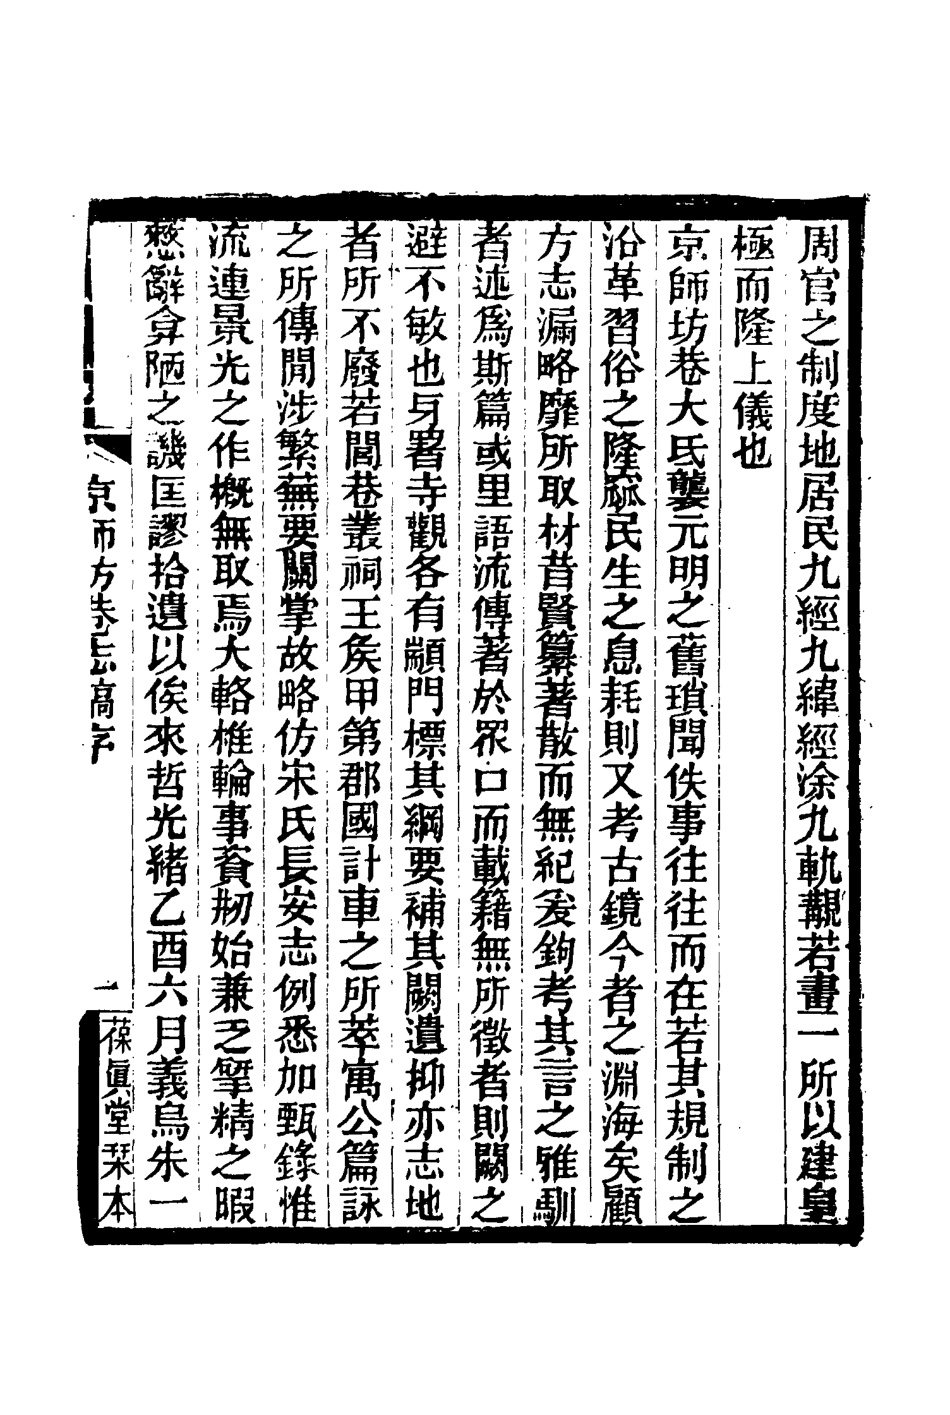 周官之制度地居民九經九緯經涂九軌覯若畫一所以建皇
極而隆上儀也
京師坊巷大氐襲元明之舊瑣聞佚事往往而在若其規制之
沿革習俗之隆窳民生之息耗則又考古鏡今者之淵海矣顧
方志漏略靡所取材昔賢纂著散而無紀爰鉤考其言之雅馴
者述爲斯篇或里語流傳著於眾口而載籍無所徵者則闕之
避不敏也身署寺觀各有顓門標其綱要補其闕遺抑亦志地
者所不廢若閭巷叢祠王矦甲第郡國計車之所萃寓公篇詠
之所傳閒涉繁蕪要關掌故略仿宋氏長安志例悉加甄錄惟
流連景光之作概無取焉大輅椎輪事資刱始兼乏揅精之暇
愁辭弇陋之譏匡謬拾遺以俟來哲光緒乙酉六月義烏朱一
京師坊巷志稿序
一
葆眞堂栞本